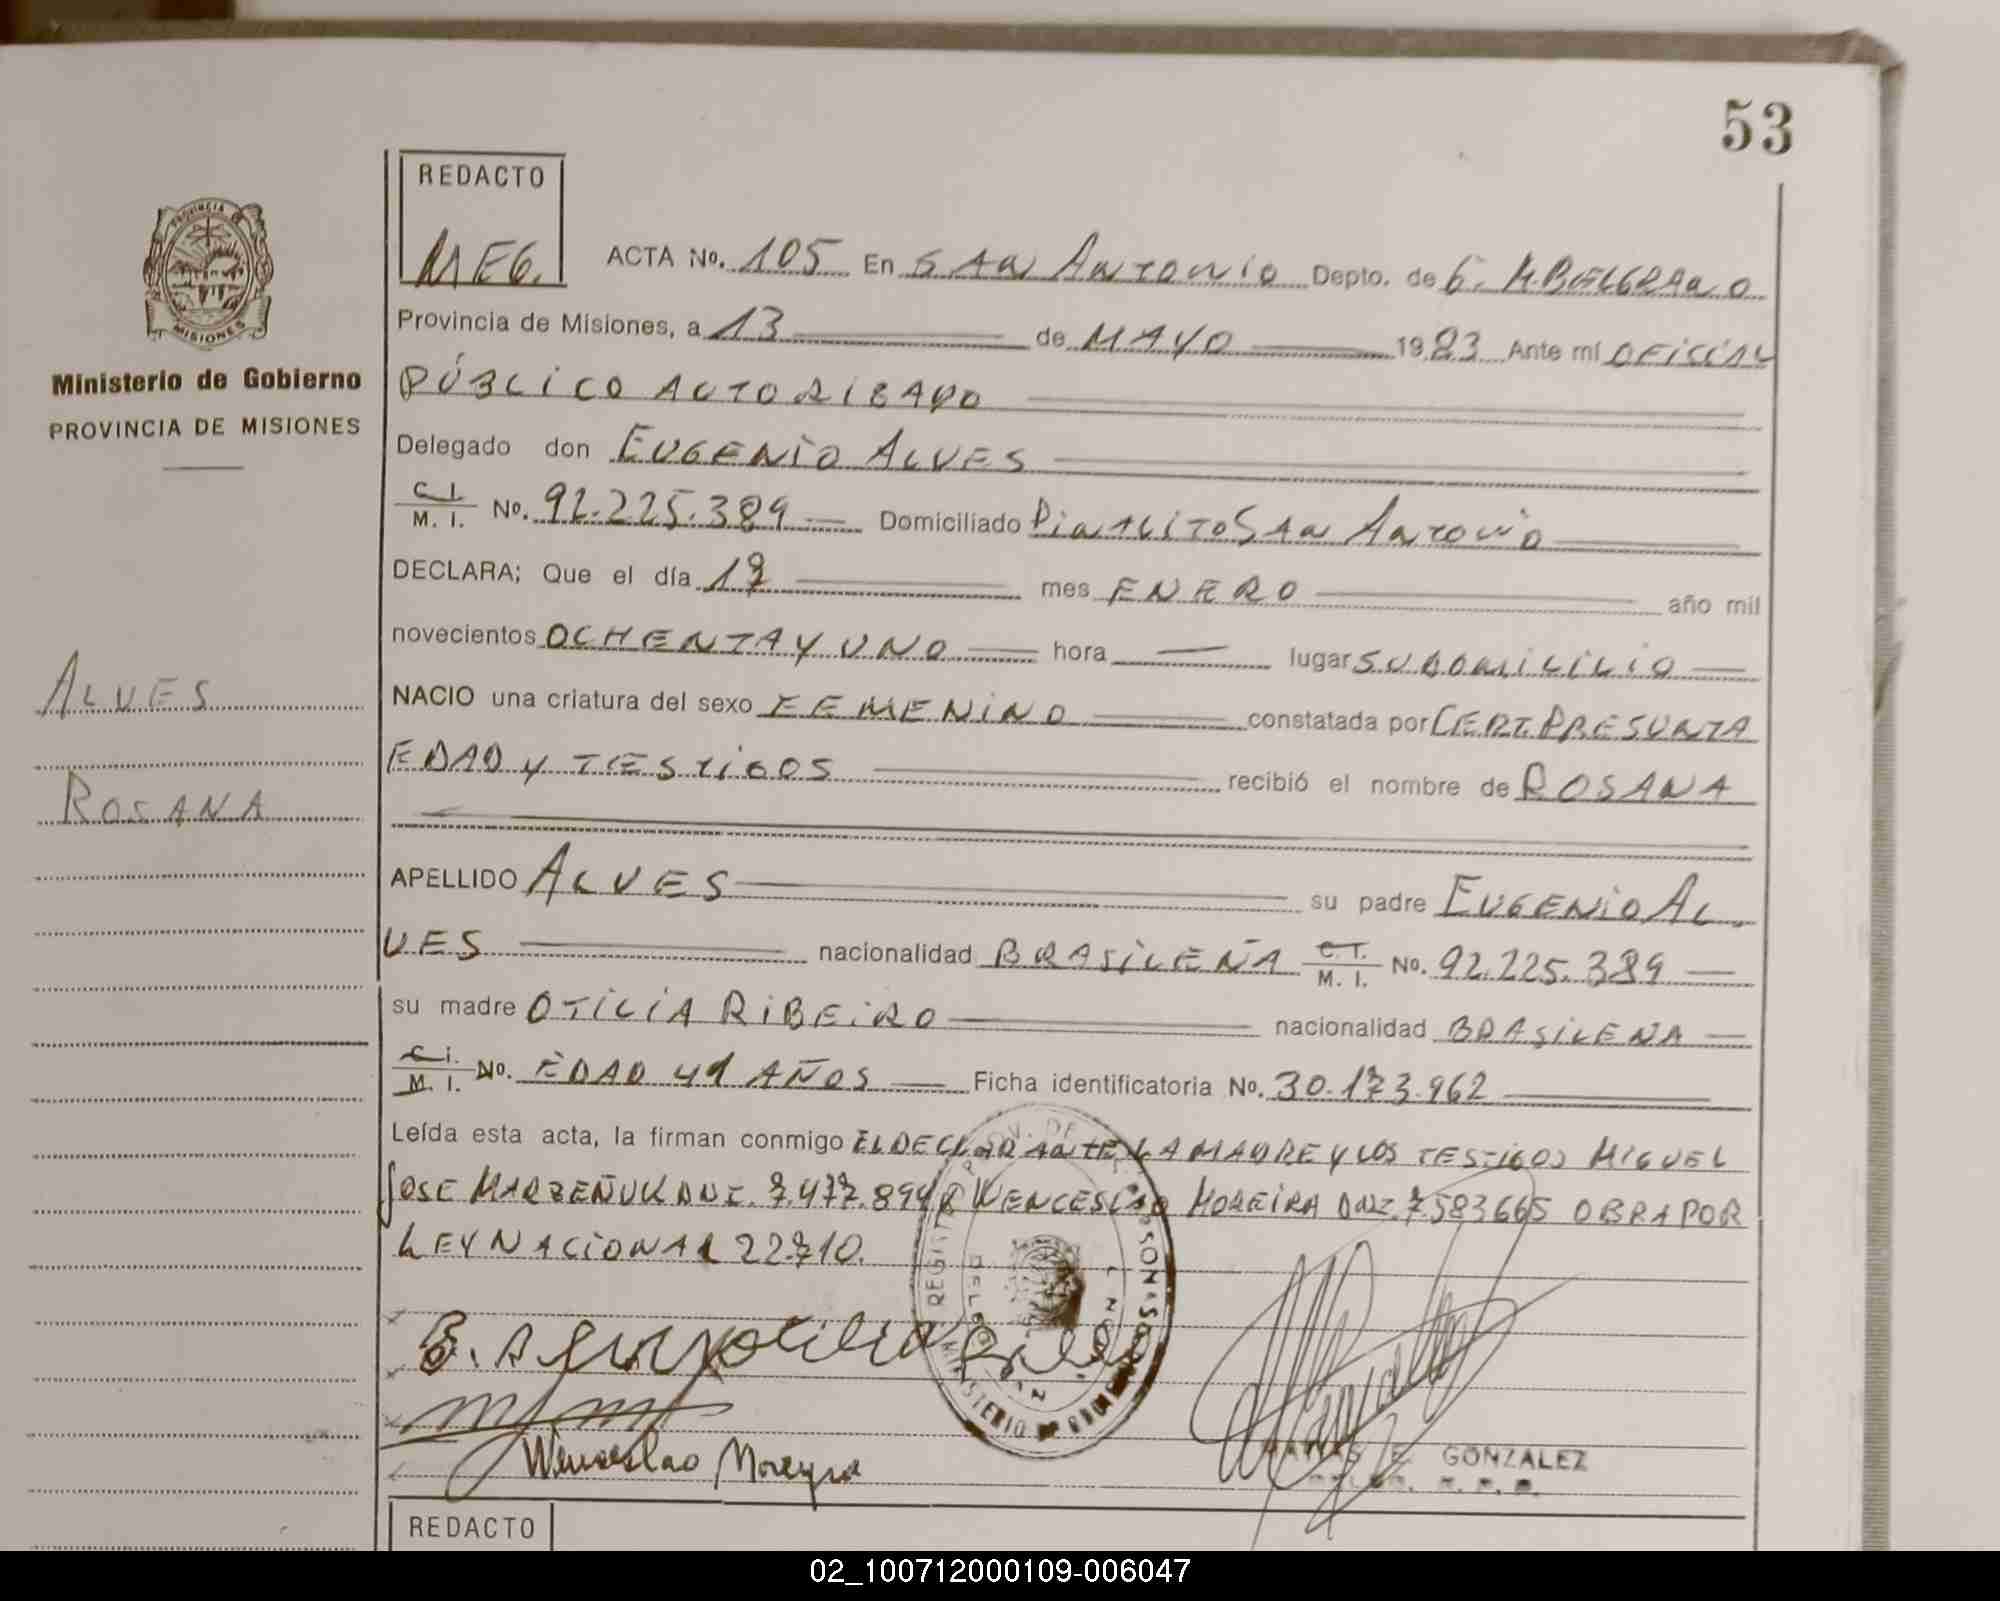 53
REDACTO
MEG.
ACTA No. 105 En SAN ANTONIO Depto. de G. M. BELGRANO
Provincia de Misiones, a 13 de MAYO 1983 Ante mí OFICIAL
PÚBLICO AUTORIZADO
Delegado don EUGENIO ALVES
C. I. / M. I. No. 92.225.389 Domiciliado PiÑALITO SAN ANTONIO
DECLARA; Que el día 17 mes ENERO año mil
novecientos OCHENTA Y UNO hora — lugar SU DOMICILIO
NACIO una criatura del sexo FEMENINO constatada por CERT. PRESUNTA
EDAD Y TESTIGOS recibió el nombre de ROSANA
APELLIDO ALVES su padre EUGENIO AL
VES nacionalidad BRASILEÑA C. I. / M. I. No. 92.225.389
su madre OTILIA RIBEIRO nacionalidad BRASILENA
C. I. / M. I. No. EDAD 41 AÑOS Ficha identificatoria No. 30.173.962
Leída esta acta, la firman conmigo EL DECLARANTE LA MADRE Y LOS TESTIGOS MIGUEL
JOSE MARZEÑUK DNI. 7.477.894 Y WENCESLAO MOREIRA DNI. 7.583665 OBRA POR
LEY NACIONAL 22.710.
Wenceslao Moreyra
E. GONZALEZ
Ministerio de Gobierno
PROVINCIA DE MISIONES
ALVES
ROSANA
REDACTO
02_100712000109-006047